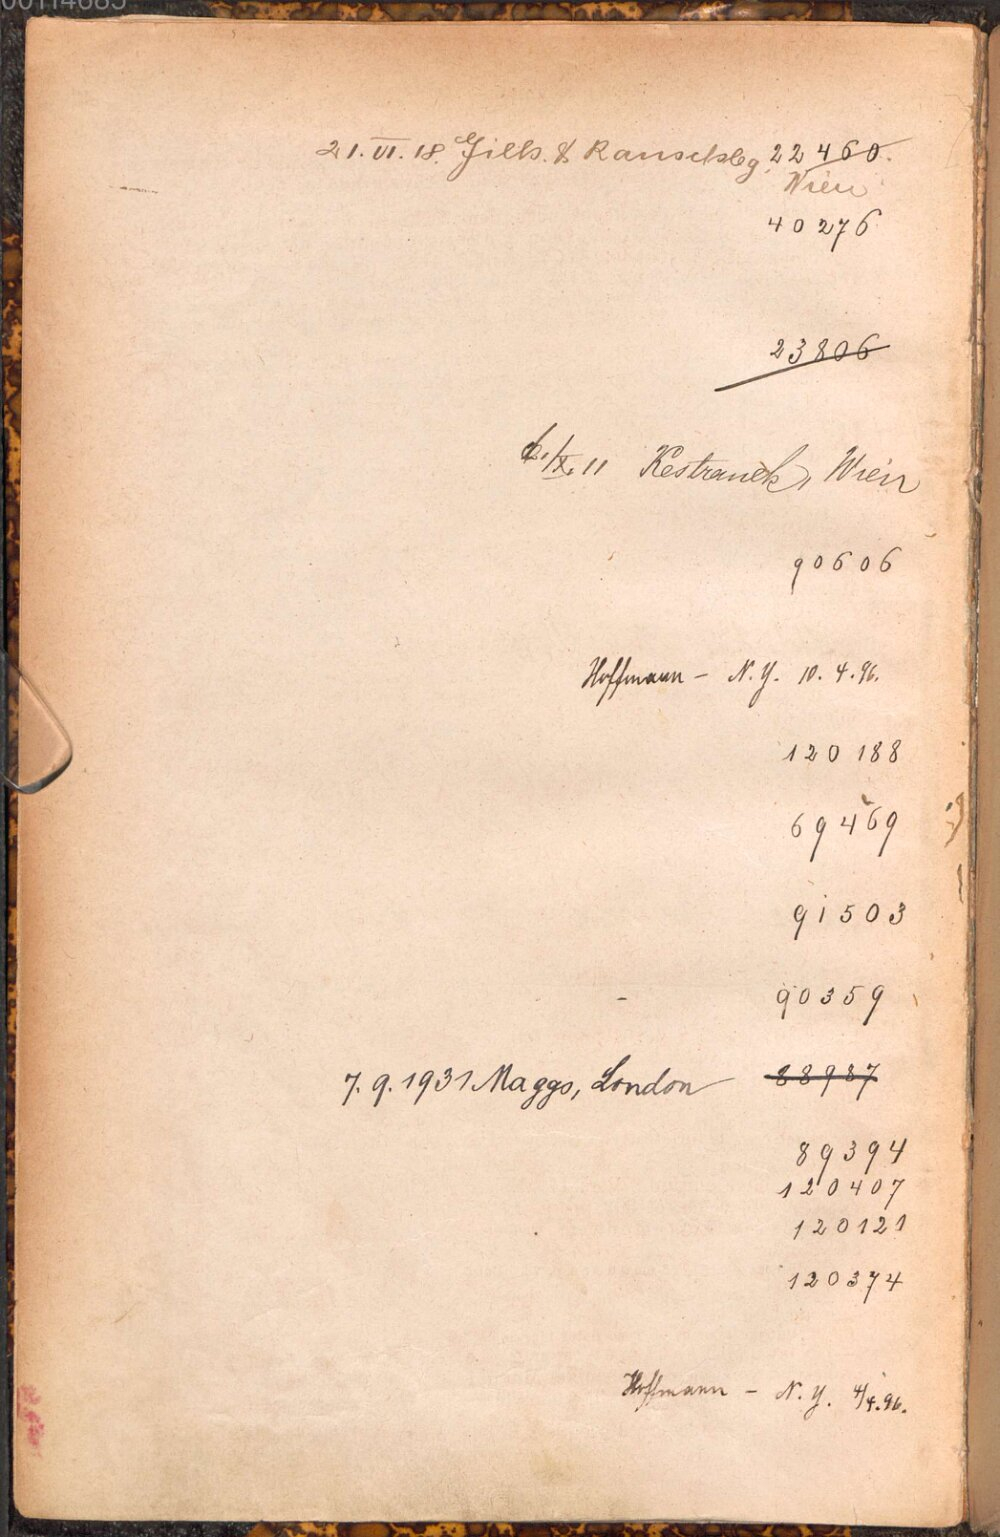 00114685
21.VI.18. Gilh. & Ranschbg. 22460.
Wien
40276
23806
/X. 11 Kestranek, Wien
90606
Hoffmann – N.Y. 10.4.96.
120188
69469
91503
90359
7.9.1931 Maggs, London 88987
89394
120407
120121
120374
Hoffmann – N.Y. 4/4.96.